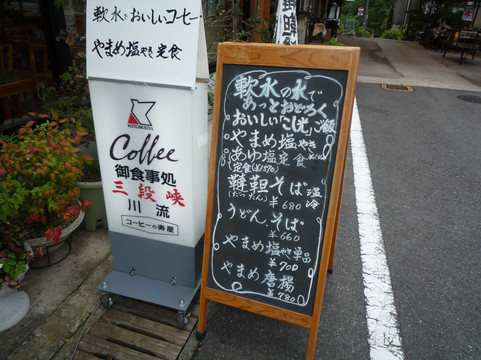 軟水でおいしいコーヒー
やまめ塩やき定食
Coffee
御食事処
三段峡
川流
コーヒーの寿屋
軟水の水で
あっとおどろく
おいしい「こしき」ご飯
やまめ塩やき
あゆ塩定食
韃靼そば 温冷
だったん ¥680
うどんそば
¥660
やまめ塩やき単品
¥700
やまめ唐揚
¥780